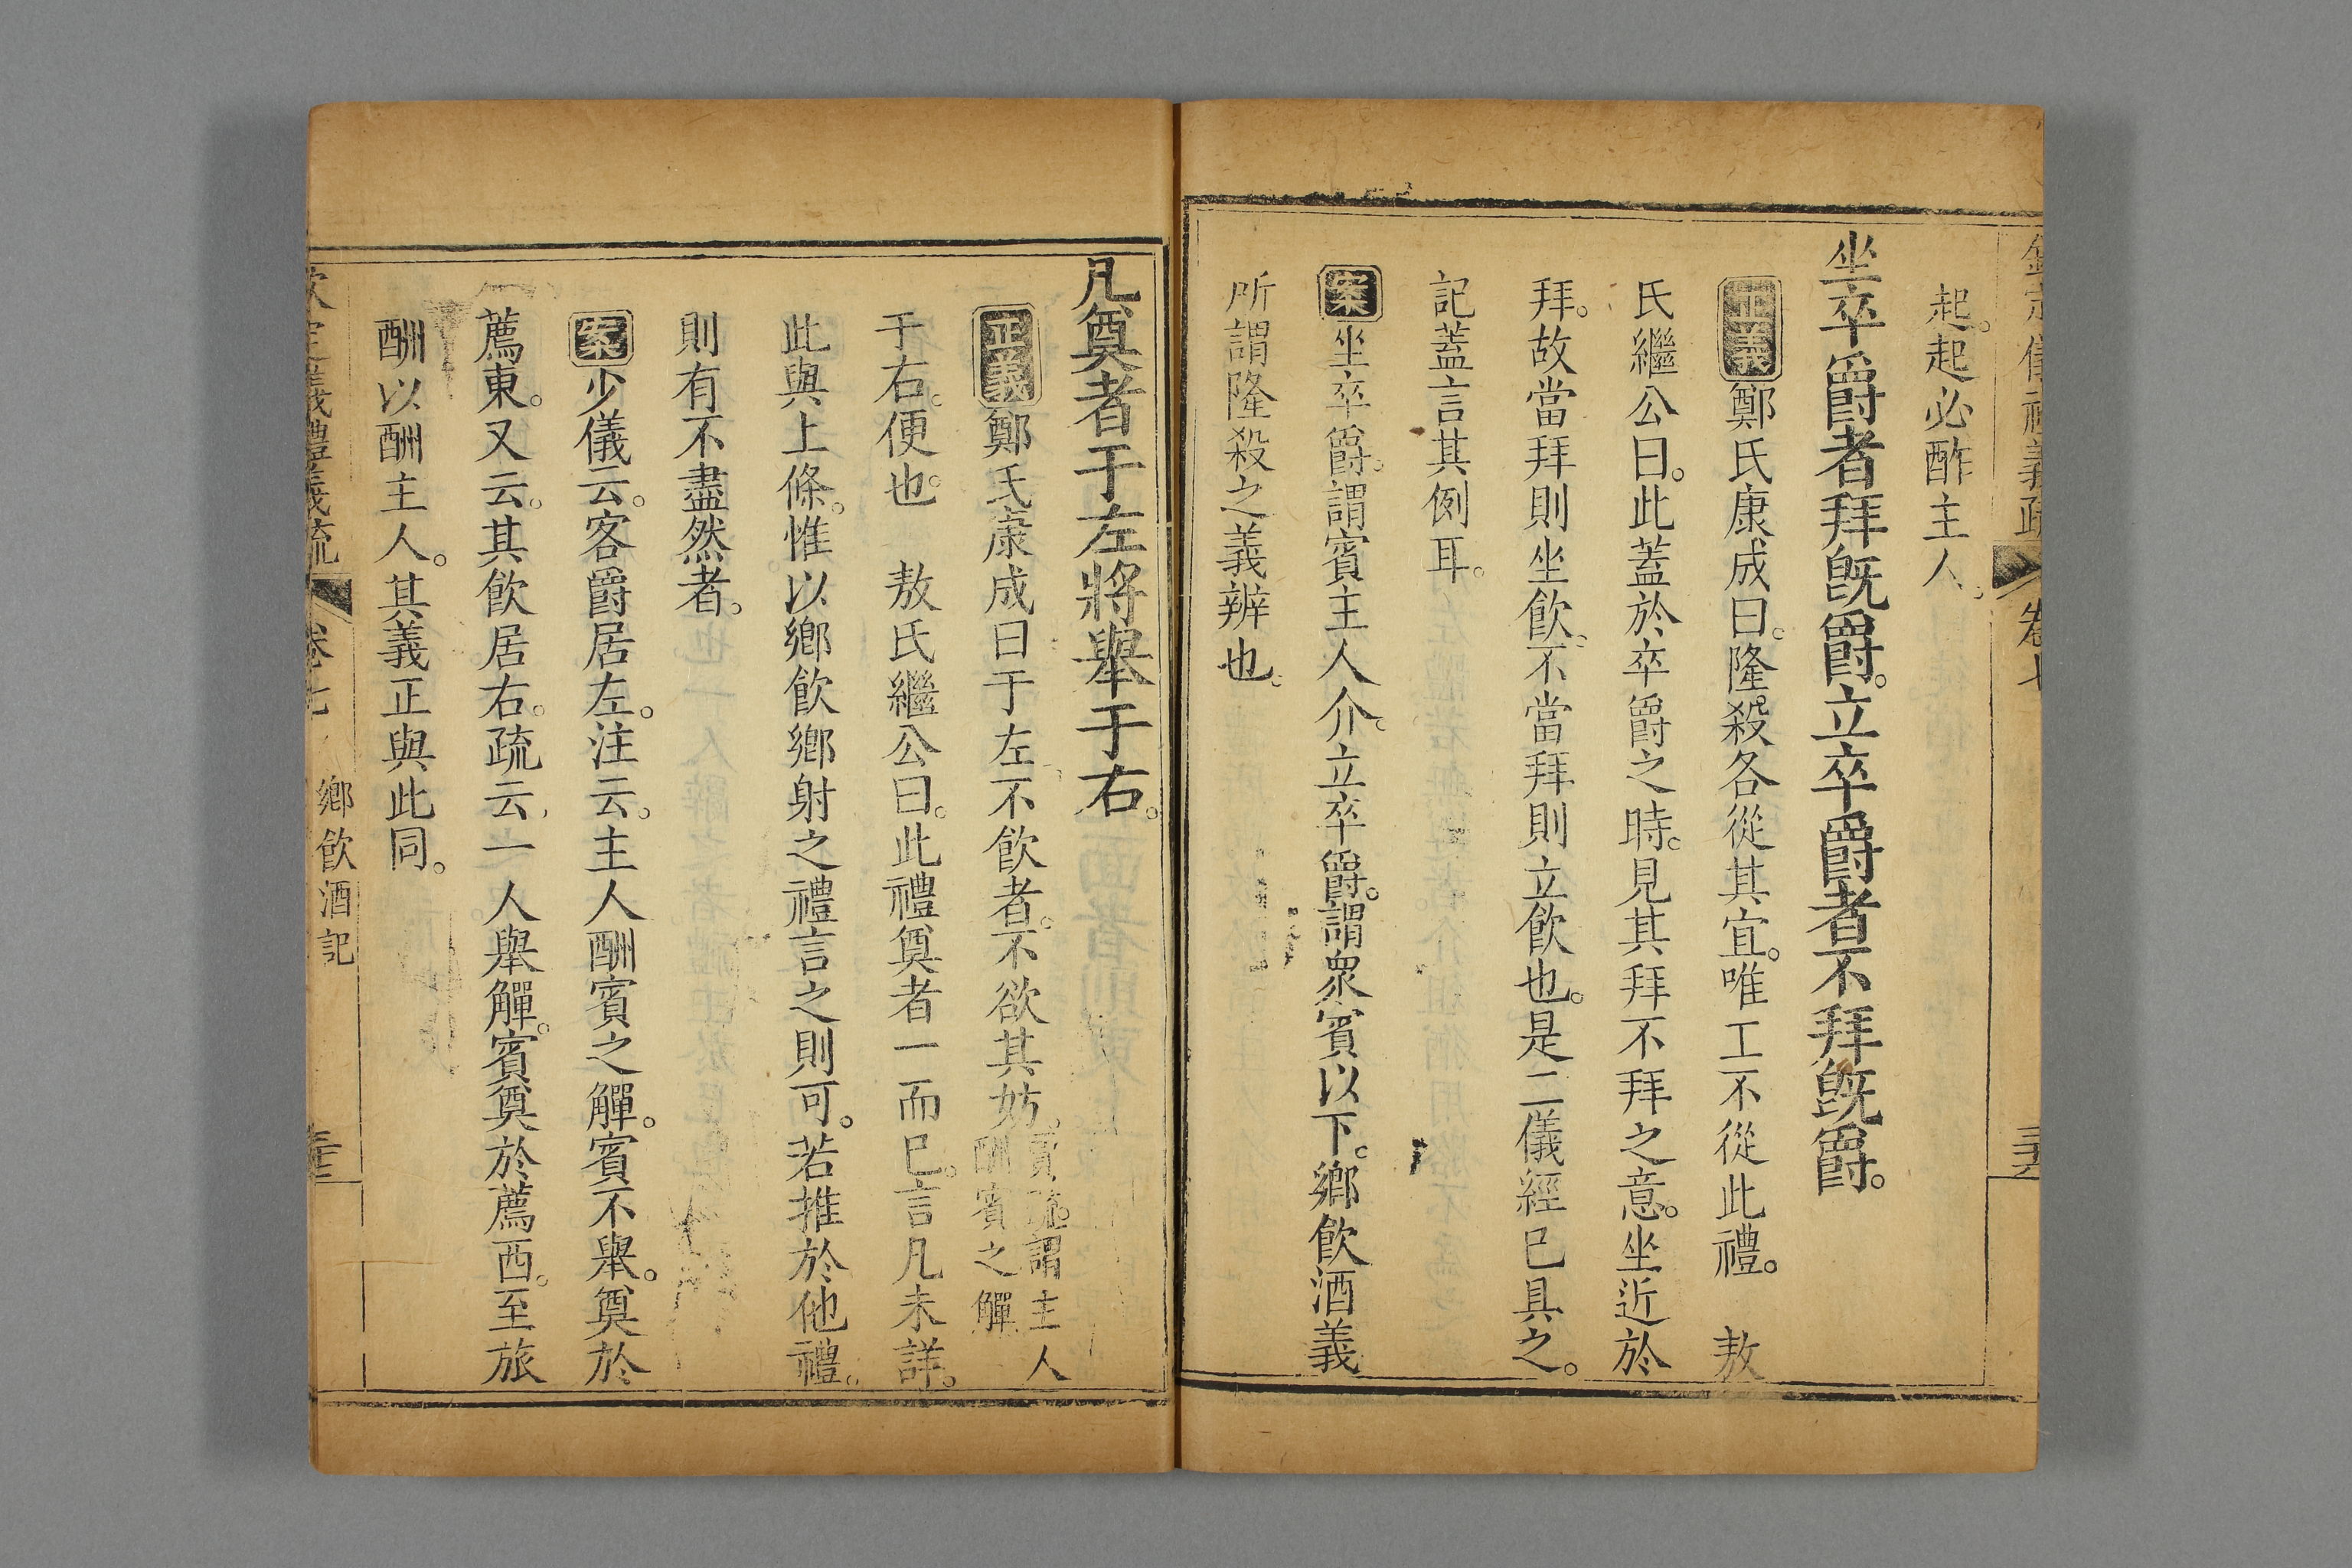 欽定儀禮義疏 卷七 三五
起。起必酢主人。
坐卒爵者拜旣爵。立卒爵者不拜旣爵。
正義鄭氏康成曰。隆殺各從其宜。唯工不從此禮。 敖
氏繼公曰。此蓋於卒爵之時。見其拜不拜之意。坐近於
拜。故當拜則坐飮、不當拜則立飮也。是二儀經已具之。
記蓋言其例耳。
案坐卒爵。謂賓主人介。立卒爵。謂衆賓以下。鄉飮酒義
所謂隆殺之義辨也。
凡奠者于左將舉于右。
正義鄭氏康成曰于左、不飮者。不欲其妨。賈疏。謂主人酬賓之觶
于右。便也。 敖氏繼公曰。此禮奠者一而已。言凡未詳。
此與上條。惟以鄉飮鄉射之禮言之則可。若推於他禮。
則有不盡然者。
案少儀云。客爵居左。注云。主人酬賓之觶。賓不舉。奠於
薦東。又云。其飮居右。疏云、一人舉觶。賓奠於薦西。至旅
酬以酬主人。其義正與此同。
欽定儀禮義疏 卷七 鄉飮酒記